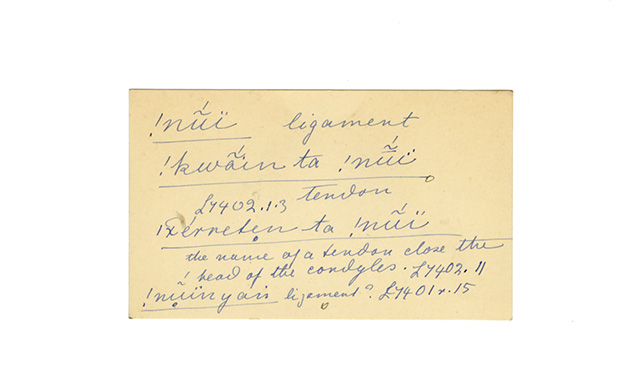 !nṹï ligament
!kwã́in ta !nṹï
L7402.1.3 tendon
érreten ta !nṹï
the name of a tendon close the
head of the condyles. L7402.11
!nṹïnyan ligament? L7401v.15